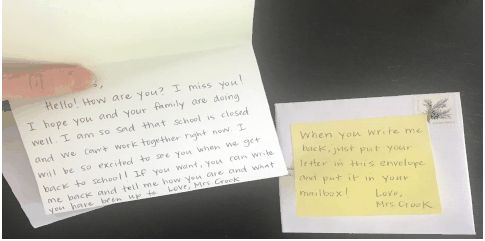 Hello! How are you? I miss you!
I hope you and your family are doing
well. I am so sad that school is closed
and we can't work together right now. I
will be so excited to see you when we get
back to school! If you want, you can write
me back and tell me how you are and what
you have been up to. Love, Mrs. Crook
When you write me
back, just put your
letter in this envelope
and put it in your
mailbox! Love,
Mrs. Crook